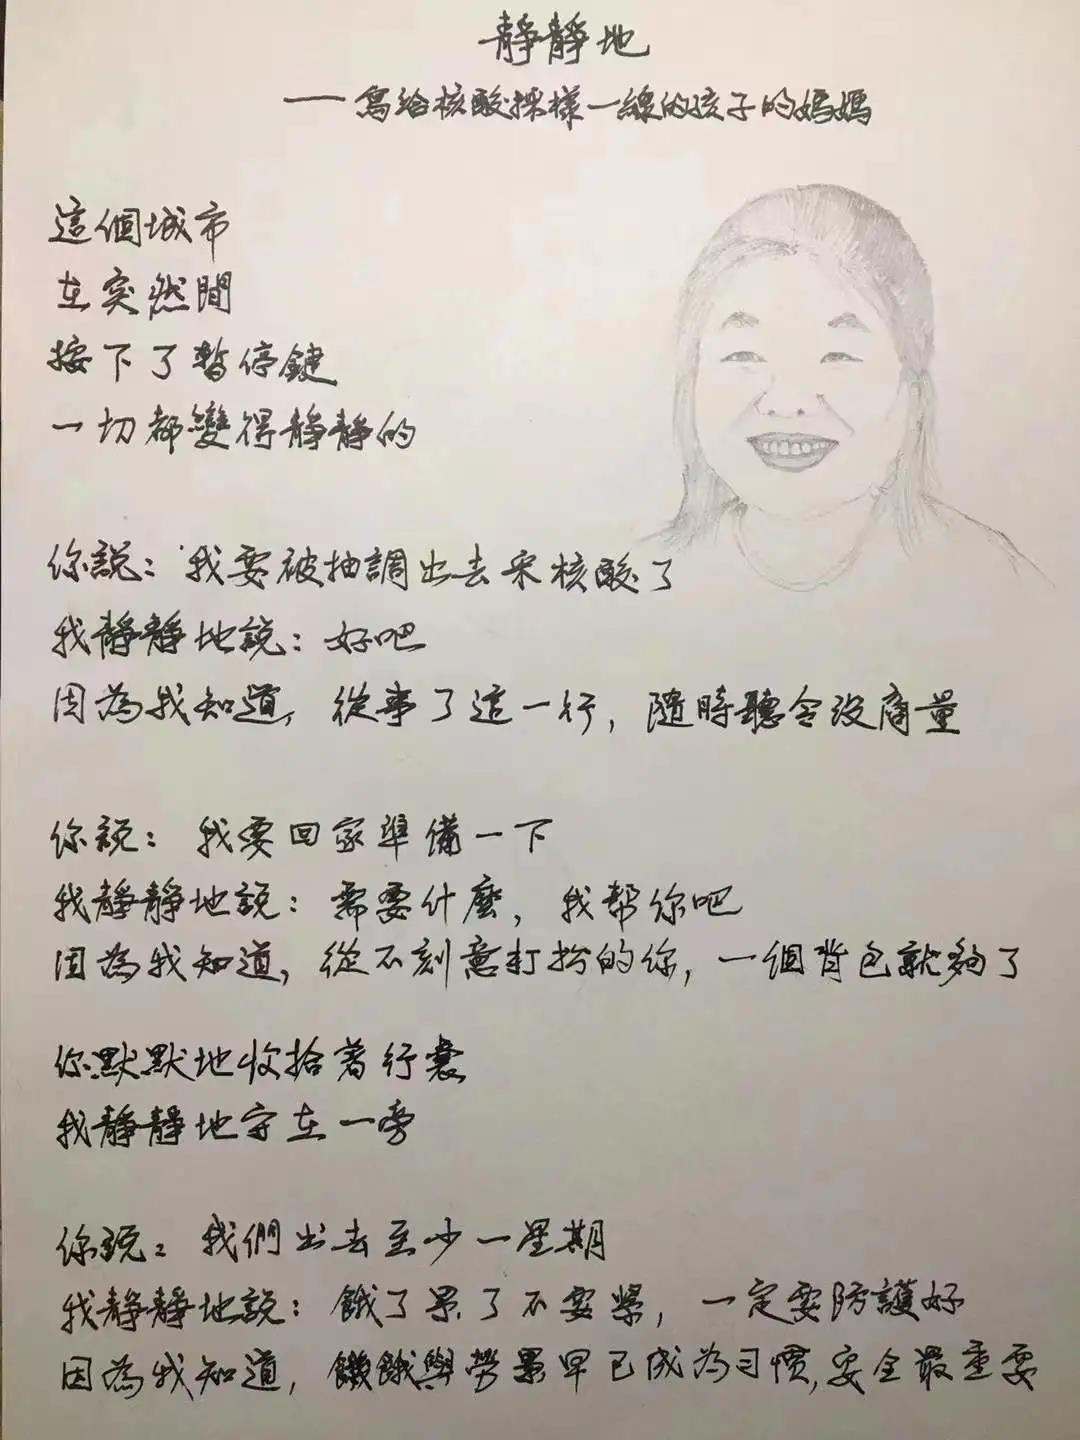 靜靜地
——寫給核酸採樣一線的孩子的媽媽
這個城市
在突然間
按下了暫停鍵
一切都變得靜靜的
你說：我要被抽調出去采核酸了
我靜靜地說：好吧
因為我知道，從事了這一行，隨時聽令沒商量
你說：我要回家準備一下
我靜靜地說：需要什麼，我帮你吧
因為我知道，從不刻意打扮的你，一個背包就夠了
你默默地收拾著行囊
我靜靜地守在一旁
你說：我們出去至少一星期
我靜靜地說：餓了累了不要緊，一定要防護好
因為我知道，饑餓與勞累早已成為習慣，安全最重要